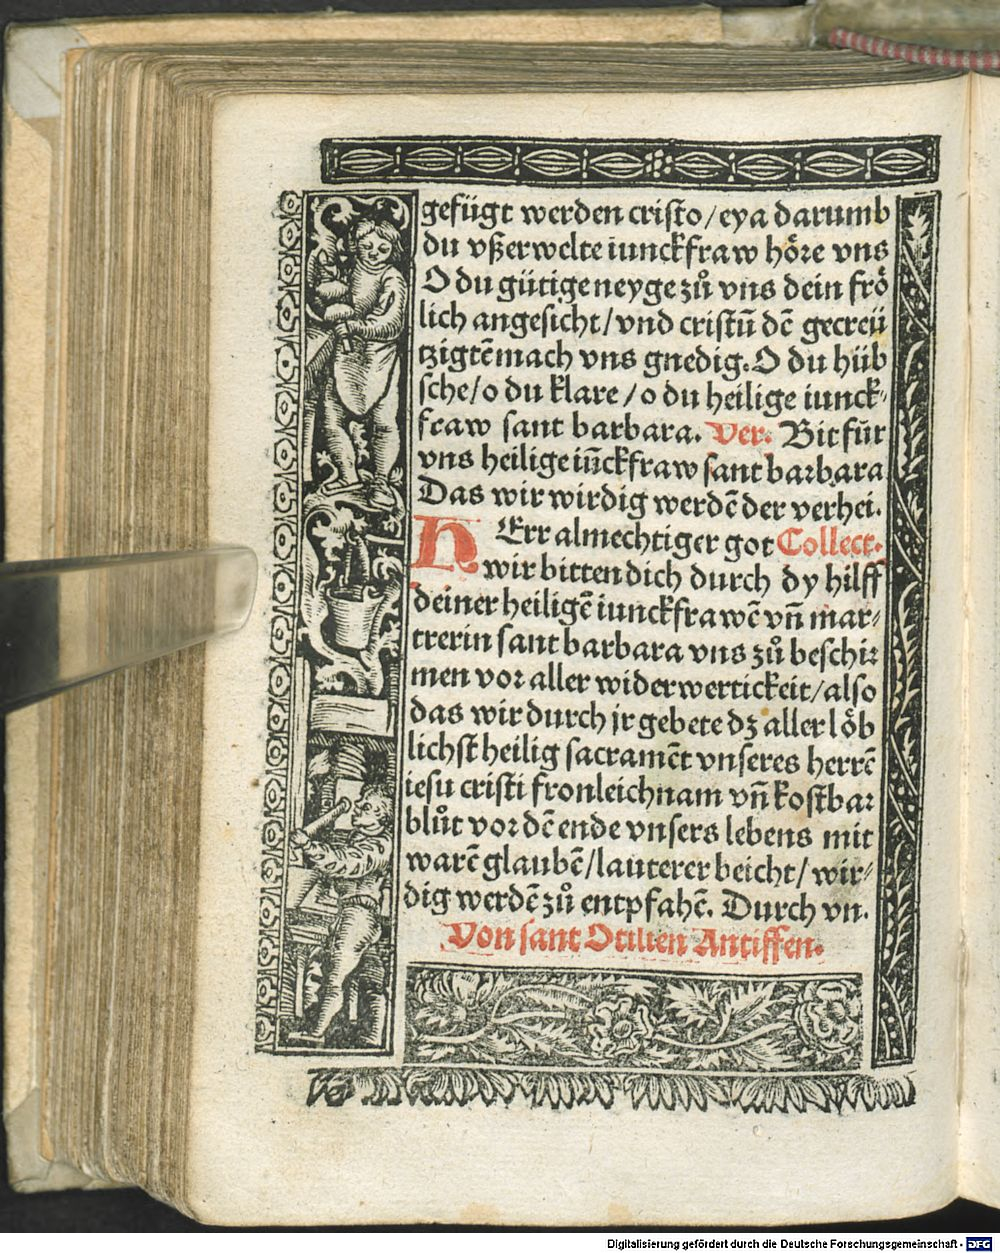 gefügt werden cristo/eya darumb
du vßerwelte iunckfraw höre vns
O du gütige neyge zů vns dein frö
lich angesicht/vnd cristū dē gecreü
tzigtē mach vns gnedig. O du hüb
sche/o du klare/o du heilige iunck⸗
fraw sant barbara. Ver. Bit für
vns heilige iūckfraw sant barbara
Das wir wirdig werdē der verhei.
HErr almechtiger got Collect.
wir bitten dich durch dy hilff
deiner heiligē iunckfrawē vn̄ mar⸗
trerin sant barbara vns zů beschir
men vor aller widerwertickeit/also
das wir durch jr gebete dz aller löb
lichst heilig sacramēt vnseres herrē
iesu cristi fronleichnam vn̄ kostbar
blůt vor dē ende vnsers lebens mit
warē glaubē/lauterer beicht/wir⸗
dig werdē zů entpfahē. Durch vn.
Von sant Otilien Antiffen.
Digitalisierung gefördert durch die Deutsche Forschungsgemeinschaft - DFG